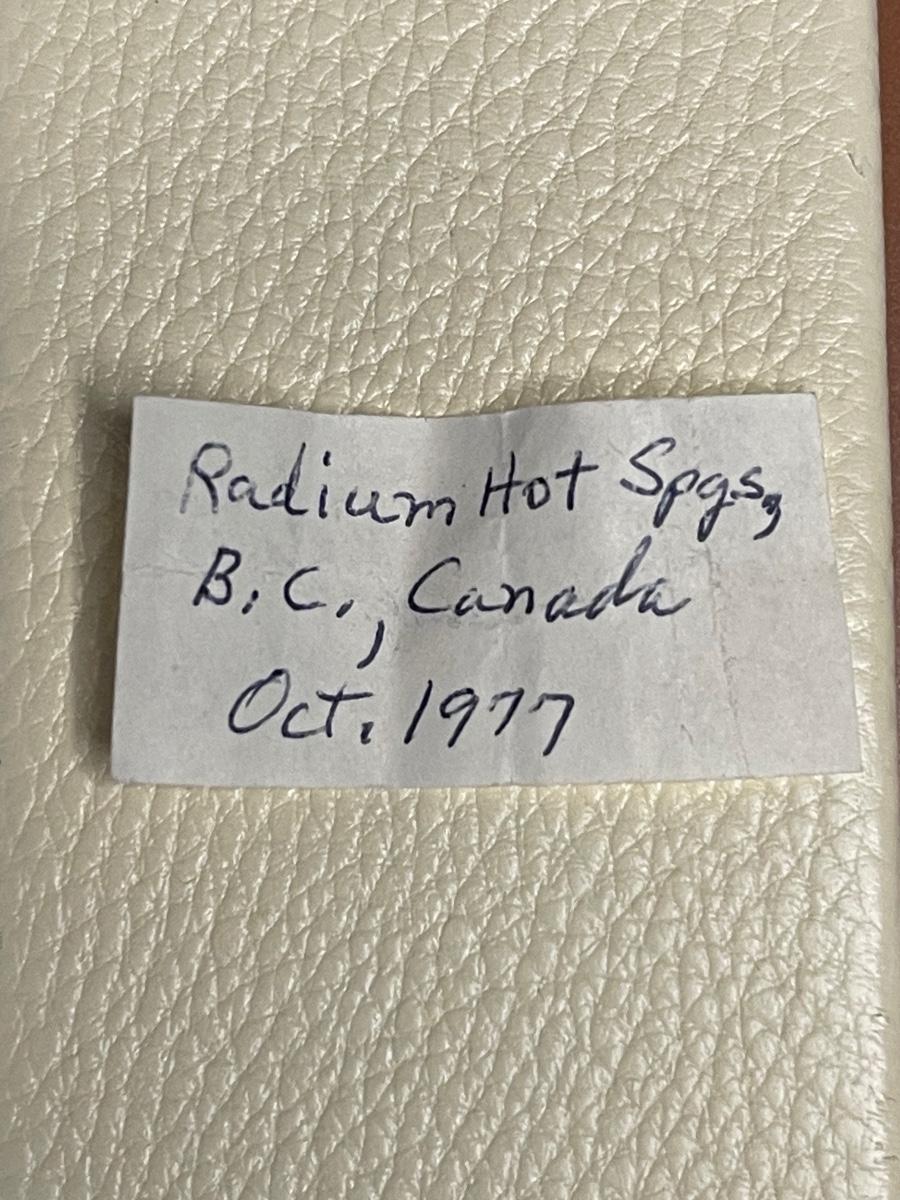 Radium Hot Spgs,
B.C., Canada
Oct. 1977